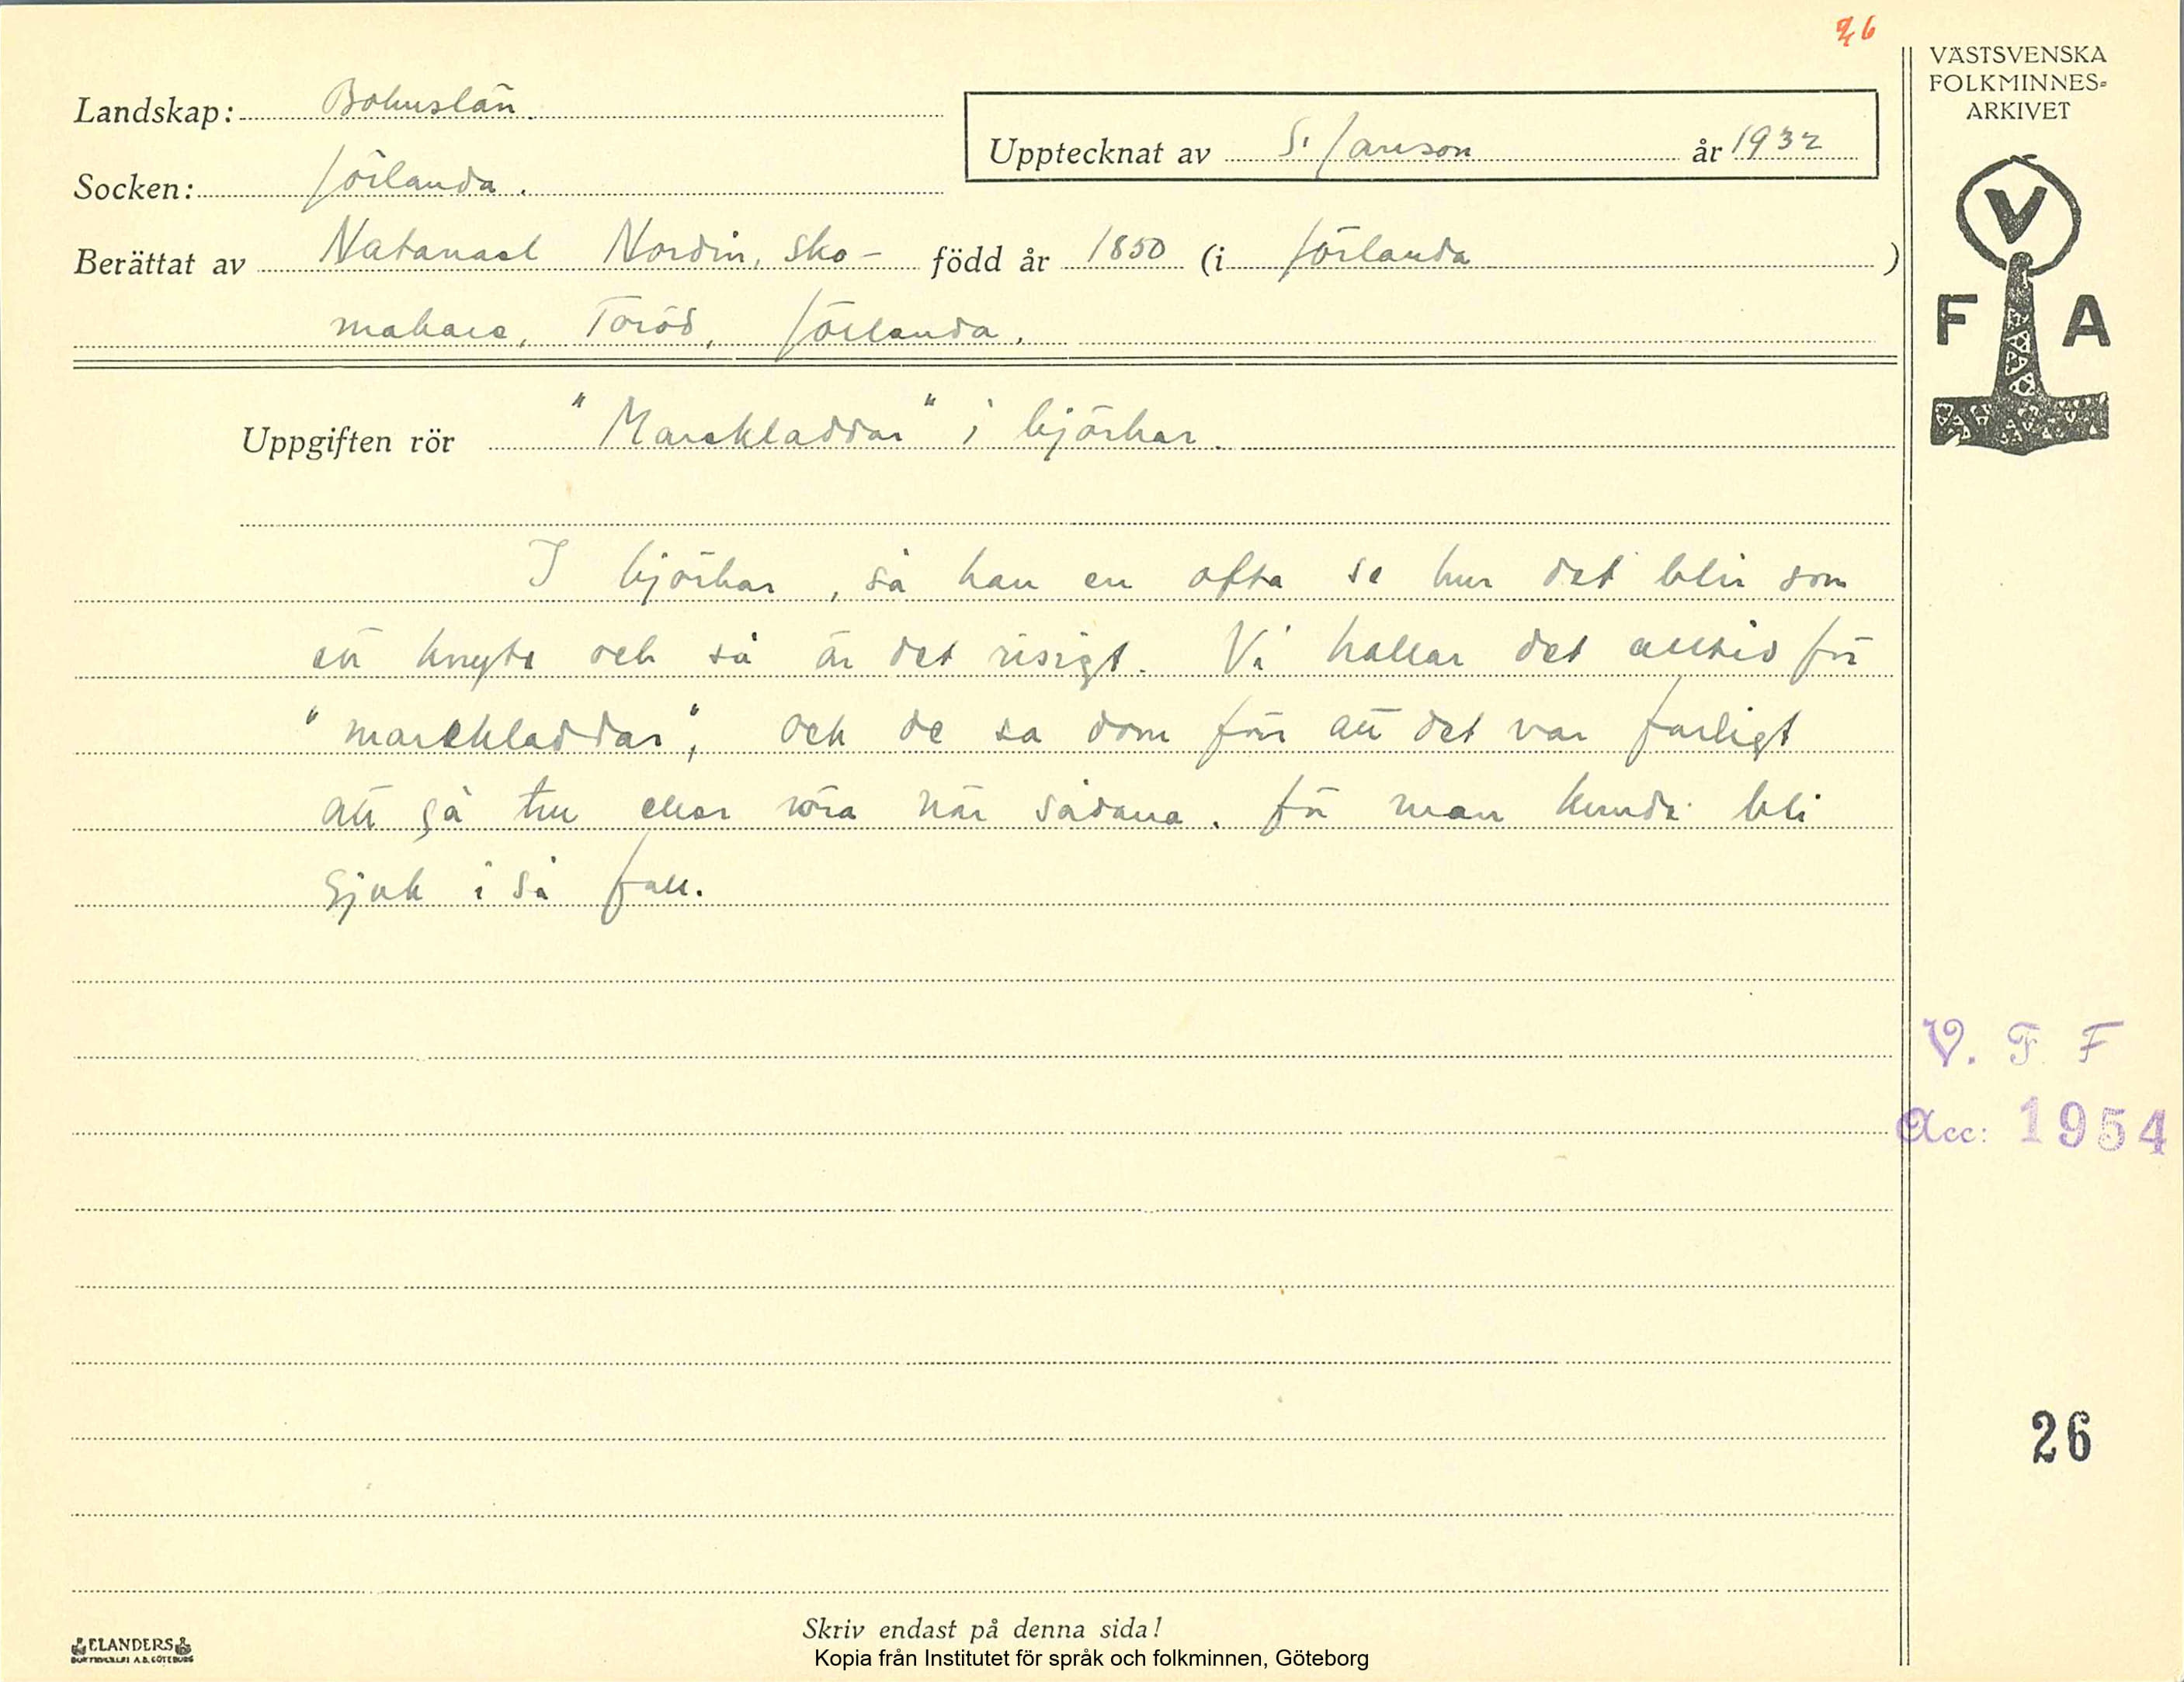 26
VÄSTSVENSKA
FOLKMINNES-
ARKIVET
Landskap: Bohuslän.
Upptecknat av S. Janson år 1932
Socken: Jörlanda.
Berättat av Natanael Nordin, sko- född år 1850 (i Jörlanda)
makare, Toröd, Jörlanda.
V
F A
Uppgiften rör "Marekladdar" i björkar.
I björkar, så kan en ofta se hur det blir som
ett knyte och så är det risigt. Vi kallar det alltid för
"marekladdar", och de sa dom för att det var farligt
att gå te eller röra när sådana. för man kunde bli
sjuk i så fall.
V. F F
Acc: 1954
26
Skriv endast på denna sida!
ELANDERS
BOKTRYCKERI A.B. GÖTEBORG
Kopia från Institutet för språk och folkminnen, Göteborg